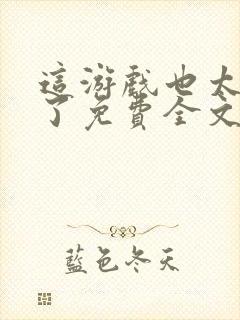 這游戲也太
了免費全文
藍色冬天